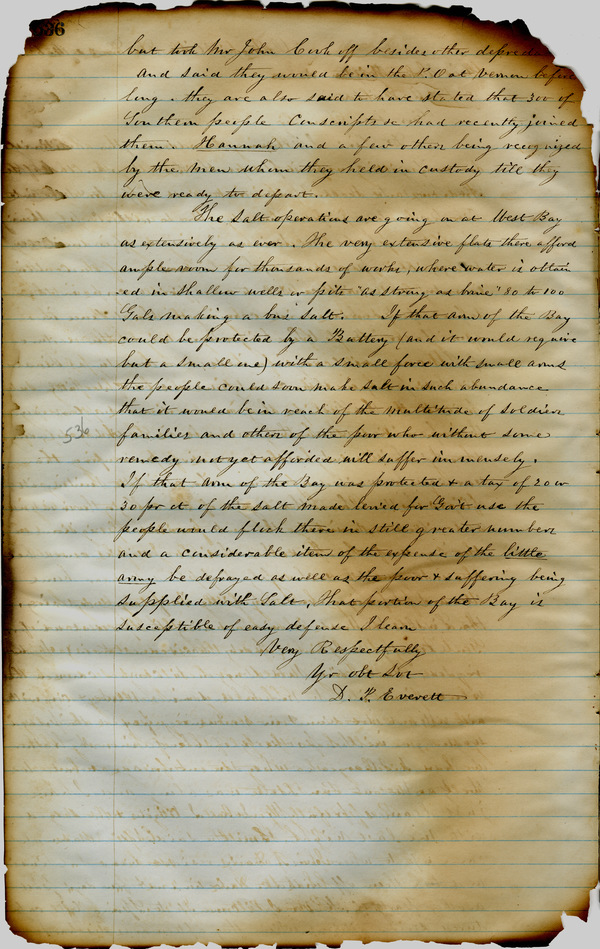 536
but took Mr John Cook off besides other depred
and said they would be in the P.O at Vernon before
long. they are also said to have stated that 300 of
Southern people Conscripts &c had recently joined
them. Hannah and a few others being recognized
by the men whom they held in custody till they
were ready to depart.
The Salt operations are going on at West Bay
as extensively as ever. The very extensive flats there afford
ample room for thousands of works, where water is obtain
ed in shallow wells or pits "as strong as brine" 80 to 100
Gals making a bus salt. If that arm of the Bay
could be protected by a Battery (and it would require
but a small one) with a small force with small arms
the people could soon make salt in such abundance
that it would be in reach of the multitude of soldiers
families and others of the poor who without some
530
remedy not yet afforded will suffer immensely.
If that arm of the Bay was protected & a tax of 20 or
30 pr ct of the salt made levied for Govt use the
people would flock there in still greater numbers
and a considerable item of the expense of the little
army be defrayed as well as the poor & suffering being
supplied with Salt, That portion of the Bay is
susceptible of easy defense I learn
Very Respectfully
Yr obt Svt
D. P. Everett